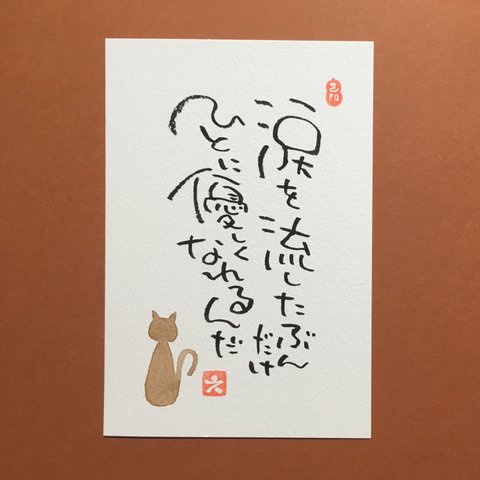 涙を流したぶん
だけ
ひとに
優しく
なれるんだ
六